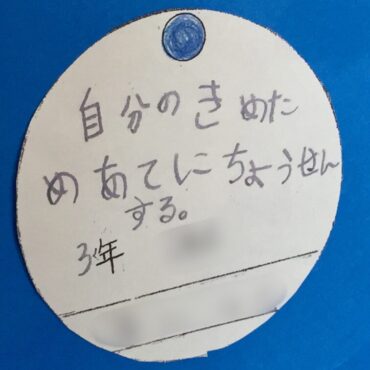 自分のきめた
めあてにちょうせん
する。
3年